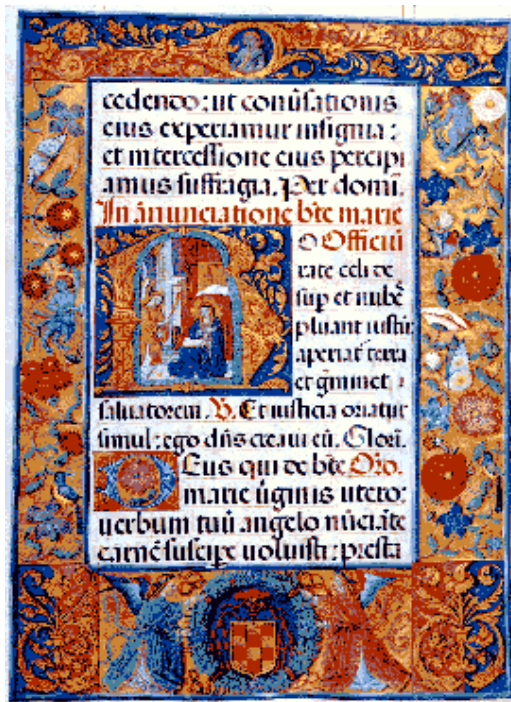 cedendo: ut conũsationis
eius experiamur insignia:
et intercessione eius percipi
amus suffragia. Per domi.
In ãnunciatione bt̃e marie
O Officiũ
rate celi de
sup et nubẽ
pluant iustũ
aperiat̃ terra
et gminet
saluatorem. V. Et iusticia oriatur
simul: ego dñs creaui eũ. Glori.
Deus qui de bt̃e Oro.
marie ũginis utero:
uerbum tuũ angelo nũciãte
carnẽ suscipe uoluisti: presta